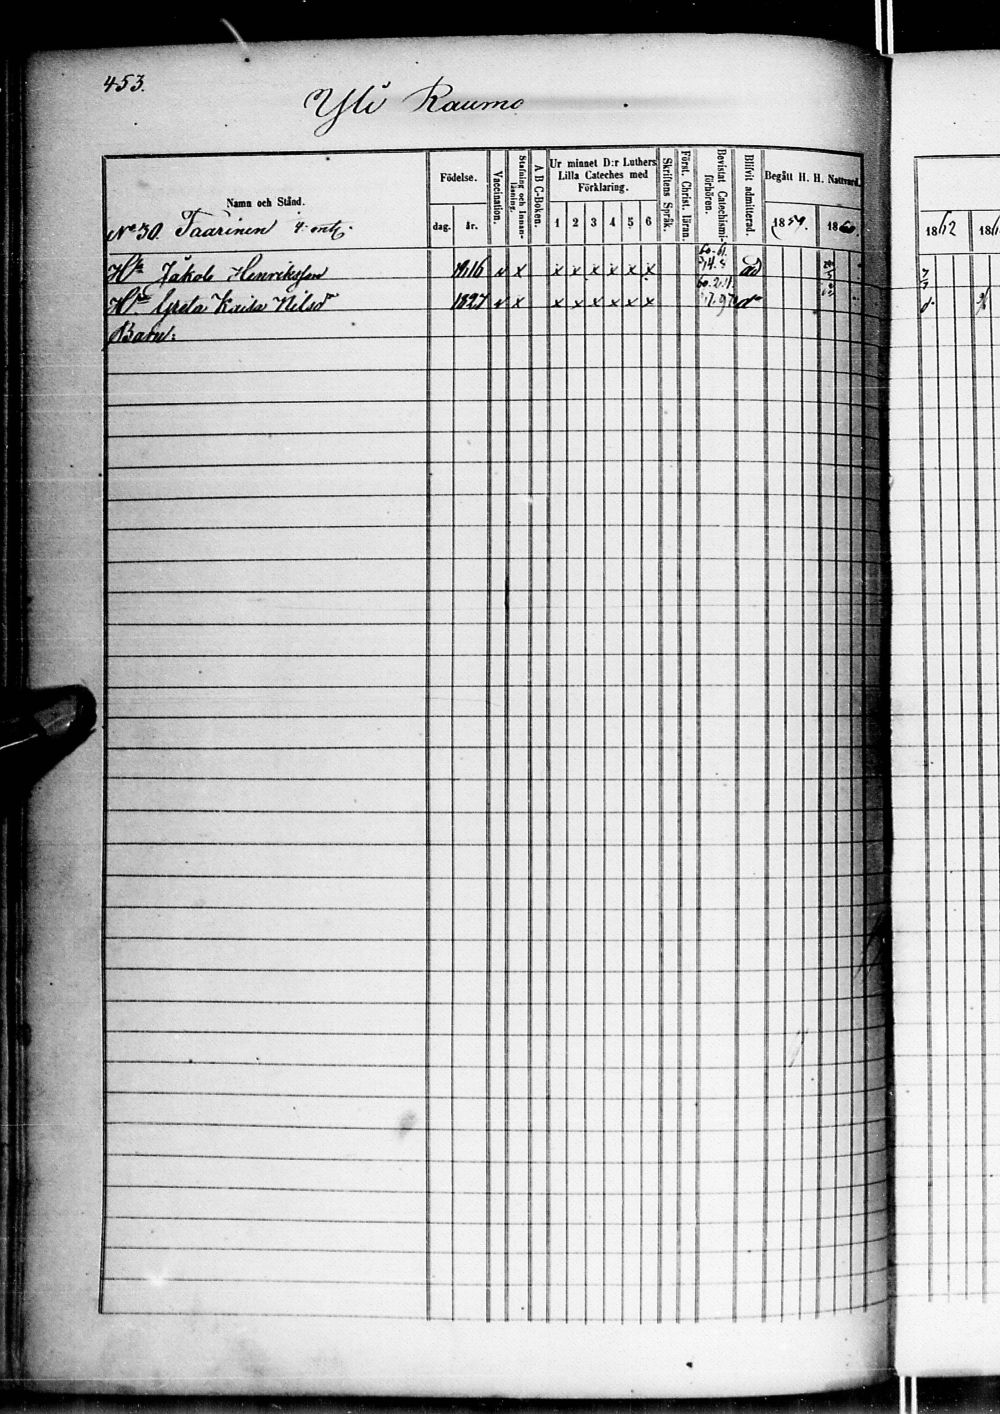 453.
Yli Raumo
Namn och Stånd.
Födelse.
dag. år.
Vaccination.
Stafning och Innan-läsning.
A B C-Boken.
Ur minnet D:r Luthers Lilla Cateches med Förklaring.
1 2 3 4 5 6
Skriftens Språk.
Först. Christ. läran.
Bevistat Catechismi-förhören.
Blifvit admitterad.
Begått H. H. Nattvard.
1859. 1860.
1862 186
No 30. Taarinen
Jakob Henriksson 1816 v x x x x x x x ad
Greta Kaisa Nilsdr 1827 v x x x x x x x do
Barn: